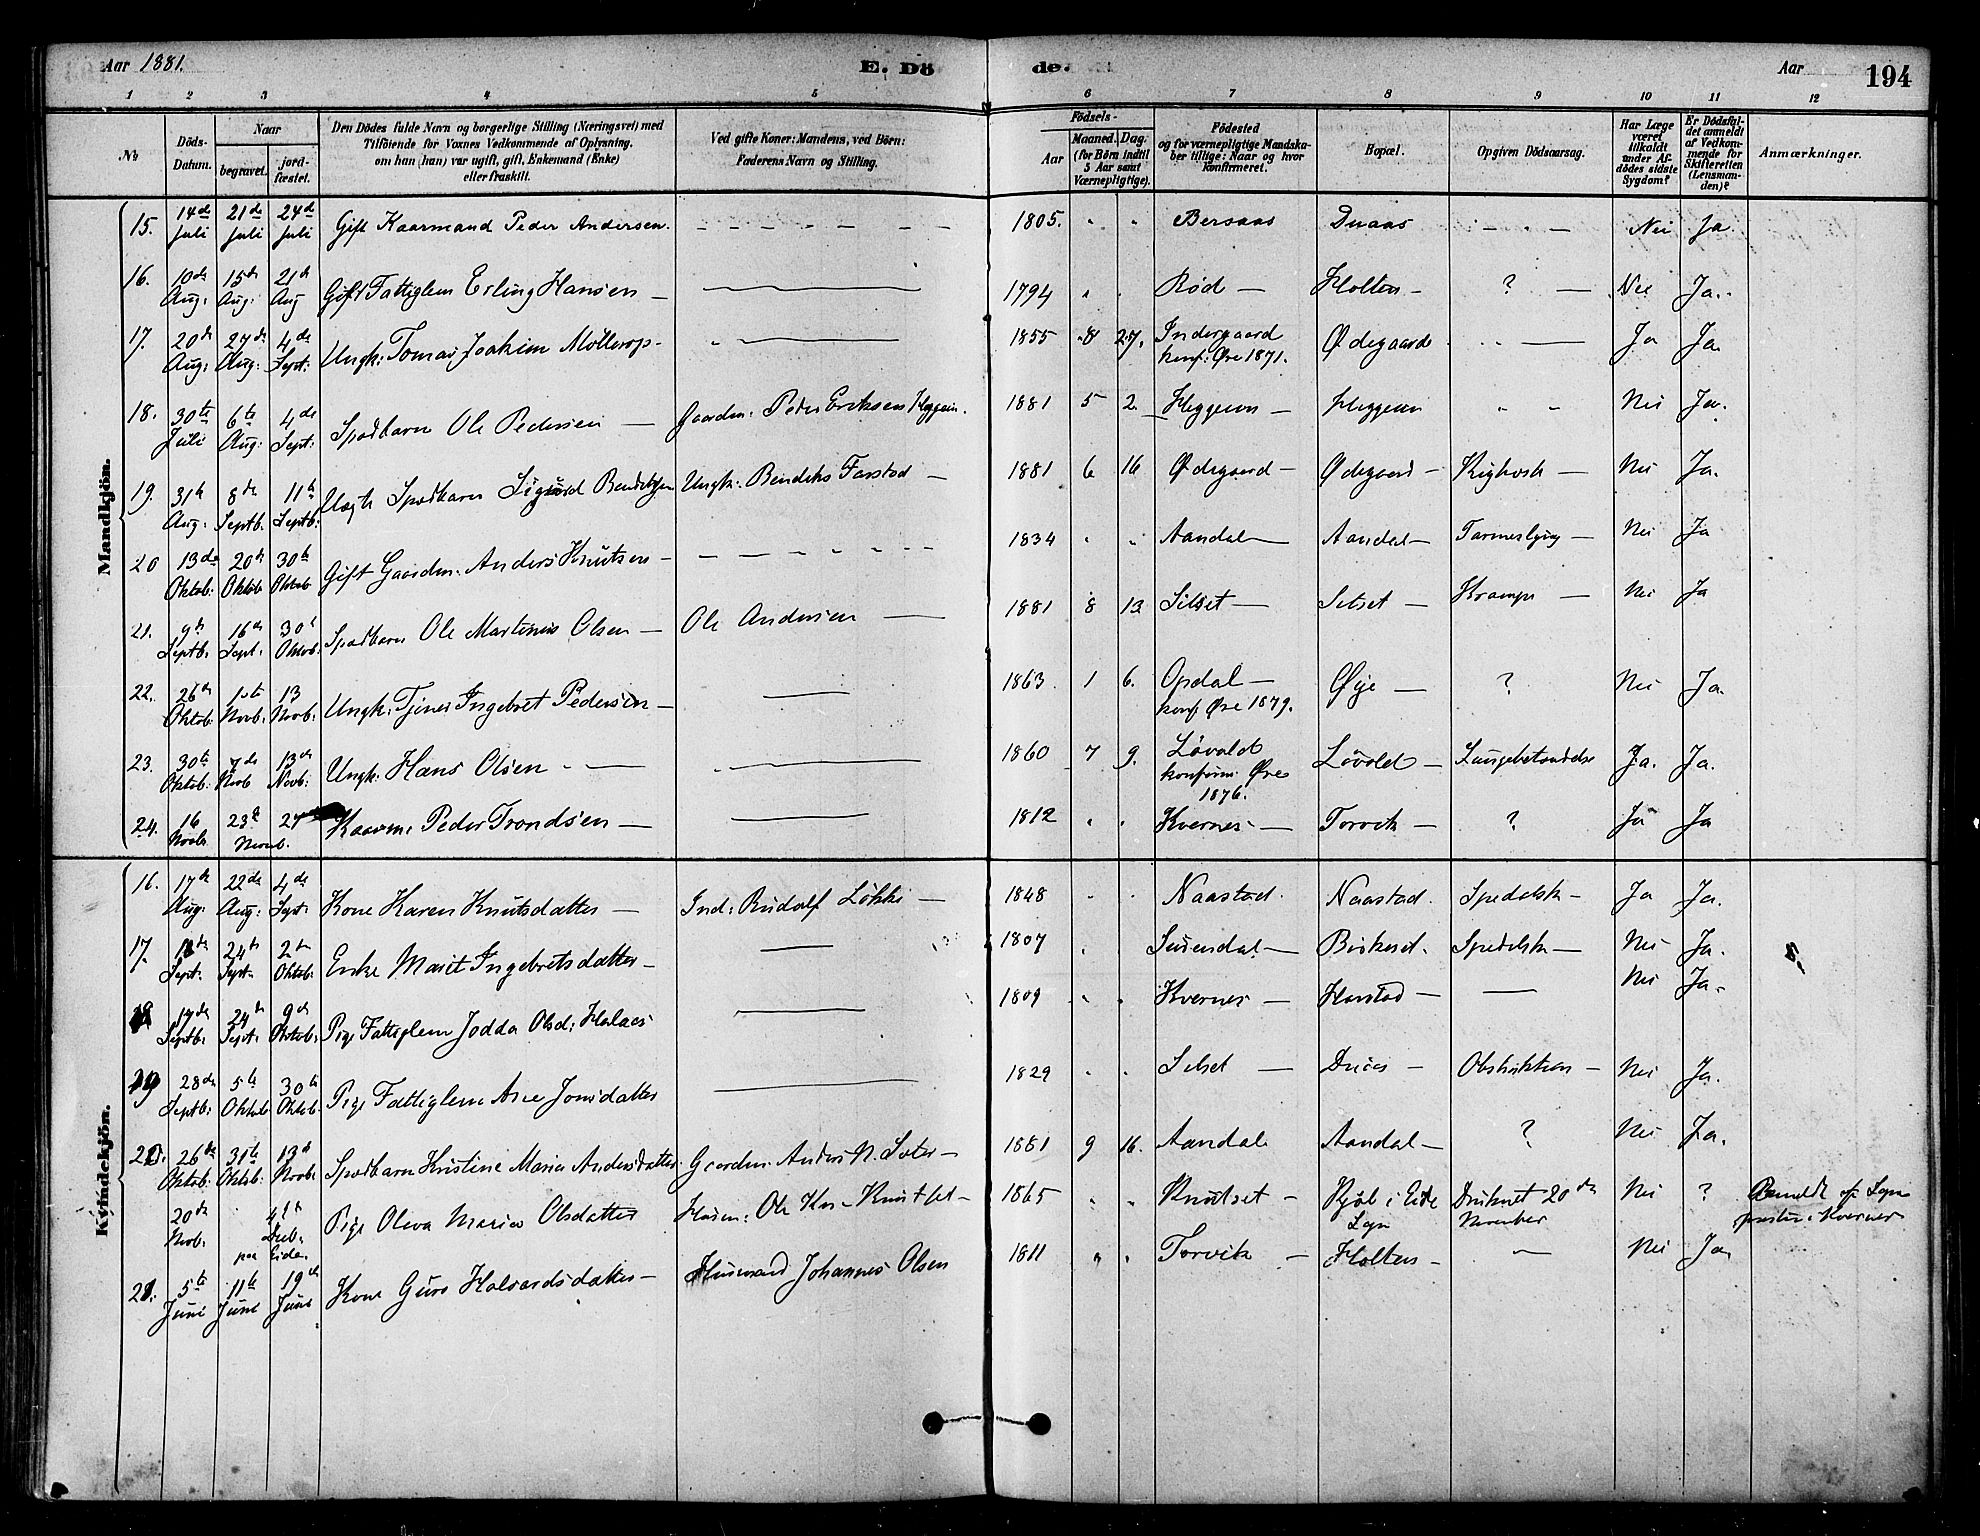 Aar 1881.
E. Dö
de.
Aar
194
1 2 3 4 5 6 7 8 9 10 11 12
№
Döds-Datum.
Naar
begravet.
jord-fæstet.
Den Dödes fulde Navn og borgerlige Stilling (Næringsvei) med
Tilföiende for Voxnes Vedkommende af Oplysning,
om han (hun) var ugift, gift, Enkemand (Enke)
eller fraskilt.
Ved gifte Koner: Mandens, ved Börn:
Faderens Navn og Stilling.
Födsels-
Aar
Maaned. Dag.
(for Börn indtil
5 Aar samt
Værnepligtige).
Födested
og for værnepligtige Mandska-
ber tillige: Naar og hvor
konfirmeret.
Bopæl.
Opgiven Dödsaarsag.
Har Læge
været
tilkaldt
under Af-
dödes sidste
Sygdom?
Er Dödsfal-
det anmeldt
af Vedkom-
mende for
Skifteretten
(Lensman-
den)?
Anmærkninger.
Mandkjön.
15. 14de Juli 21de Juli 24de Juli Gift Kaarmand Peder Andersen. 1805. Bersaas Duaas Nei Ja
16. 10de Aug: 15de Aug: 21de Aug Gift Fattiglem Erling Hansen 1794 Rød Holten ? Nei Ja.
17. 20de Aug: 27de Aug: 4de Sept: Ungk: Tomas Joakim Møllerop 1855 8 27. Indergaard Ødegaard Ja Ja.
konf: Øre 1871.
18. 30te Juli 6te Aug: 4de Sept: Spædbarn Ole Pedersen Gaardm: Peder Eriksen Heggem. 1881 5 2 Heggem Heggem Nei Ja.
19. 31te Aug. 8de Septb. 11te Septb. Uægte Spædbarn Sigurd Ungk: Bendiks Farstad 1881 6 16 Ødegaard Ødegaard Kighoste Nei Ja.
20 13de Oktob. 20de Oktob. 30te Oktob. Gift Gaardm: Anders Knutsen 1834 Aandal Aandal Nei Ja
21. 9de Septb. 16de Sept. 30te Oktob. Spædbarn Ole Martinus Olsen Ole Andersen 1881 8 13 Silset Silset Krampe Nei Ja
22. 26de Oktob. 1ste Novb. 13 Novb. Ungk: Tjener Ingebret Pedersen 1863 1 6. Opdal Øye ? Nei Ja.
konf Øre 1879.
23. 30te Oktob. 7de Novb 13de Novb. Ungk: Hans Olsen 1860 7 9. Løvold Løvold Lungebetændelse Ja. Ja.
konfirm: Øre
1876.
24. 16 Novb. 23de 27 Novb. Kaarm: Peder Trondsen 1812 Kvernes Torvik ? Ja Ja
Kvindekjön.
16. 17de Aug: 22de Aug: 4de Sept. Kone Karen Knutsdatter Ind: Rudolf Løkke 1848 Naastad. Naastad. Spedalsk Ja Ja.
17. Sept. 24de Sept. 2de Oktob. Enke Marit Ingebretsdatter 1807 Surendal Birkeset. Spedalsk Nei Ja.
18 17de Septb. 24de Sept. 9de Oktob. Pige Fattiglem Jodda Olsd: Halaas 1809 Kvernes Harstad Nei Ja.
19 28de Septb. 5te Oktob 30te Oktob. Pige Fattiglem Ane Jonsdatter 1829 Silset Duaas Obstruktion Nei Ja.
20. 26de Oktob. 31te Oktob. 13de Novb. Spædbarn Kristine Marie Andersdatter. Gaardm: Anders N. 1881 9 16. Aandal Aandal ? Nei Ja.
20de Novb. 4de Decb. paa Eide. Pige Oleva Maria Olsdatter Husm: Ole Knutset 1865 Knutset i Eide Druknet 20de Nei ? Anmeldt af Sogne
Sogn November præsten i Kvernes
21. 5te Juni 11te Juni 19de Juni Kone Guro Halvardsdatter Husmand Johannes Olsen 1811 Torvik Holten Nei Ja.